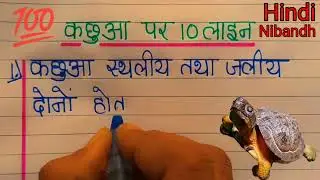 100
कछुआ पर 10 लाइन
Hindi
Nibandh
1) कछुआ स्थलीय तथा जलीय
दोनों होत